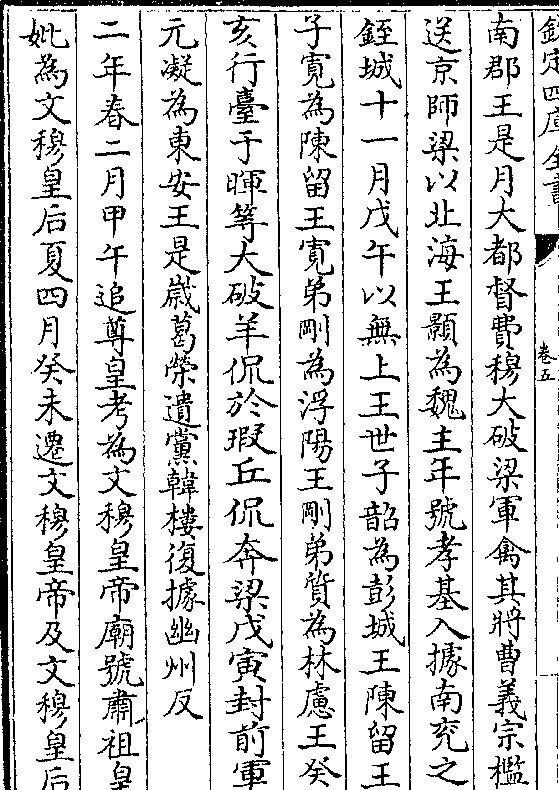 欽定四庫全書
卷五
南郡王是月大都督費穆大破梁軍禽其將曹義宗檻
送京師梁以北海王顥為魏主年號孝基入據南兖之
銍城十一月戊午以無上王世子韶為彭城王陳留王
子寛為陳留王寛弟剛為浮陽王剛弟質為林慮王癸
亥行臺于暉等大破羊侃於瑕丘侃奔梁戊寅封前軍
元凝為東安王是嵗葛榮遺黨韓樓復據幽州反
二年春二月甲午追尊皇考為文穆皇帝廟號肅祖皇
妣為文穆皇后夏四月癸未遷文穆皇帝及文穆皇后